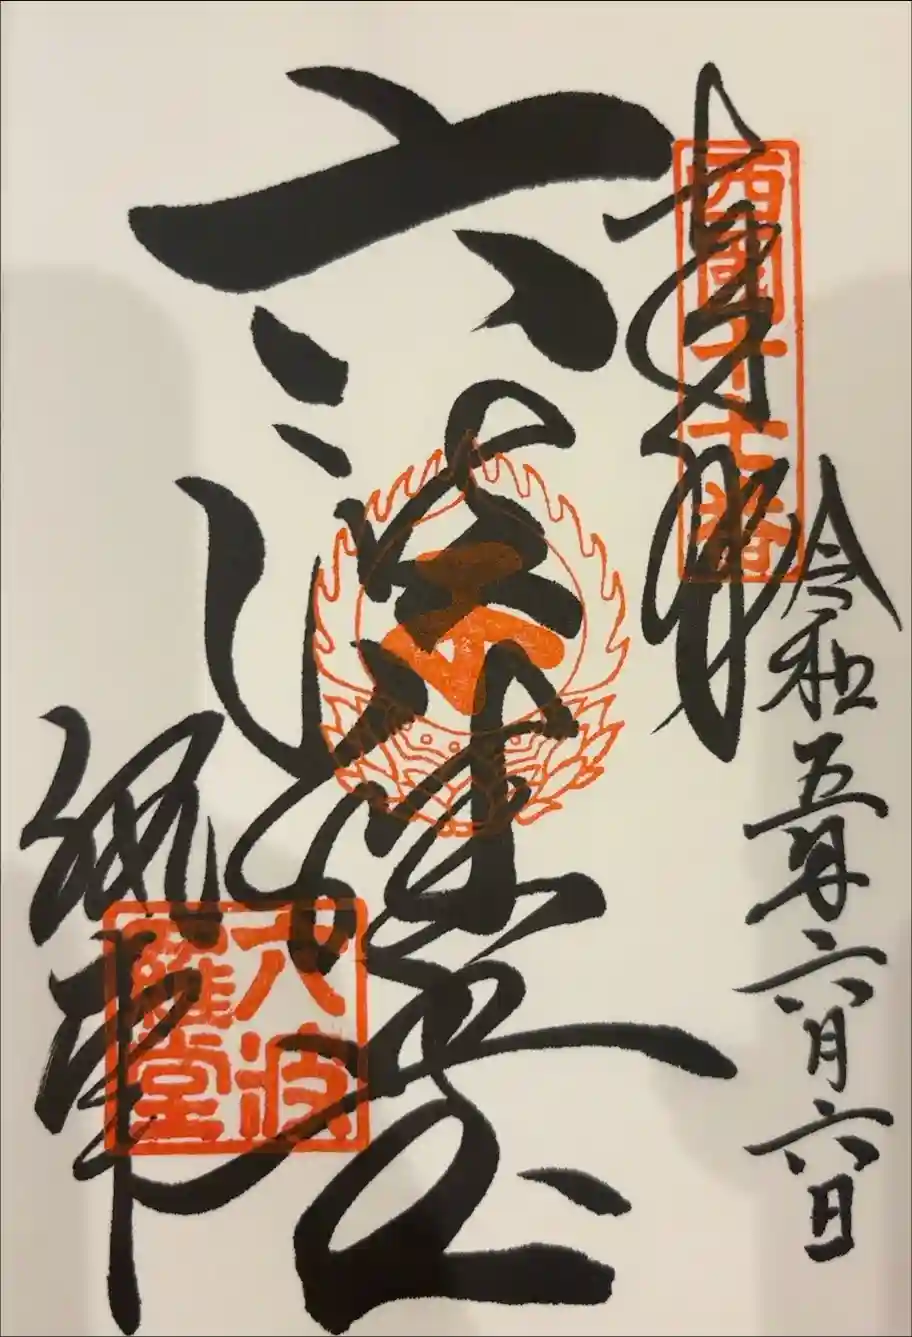 奉拝
西國十七番
令和五年六月六日
六波羅堂
六波
羅堂